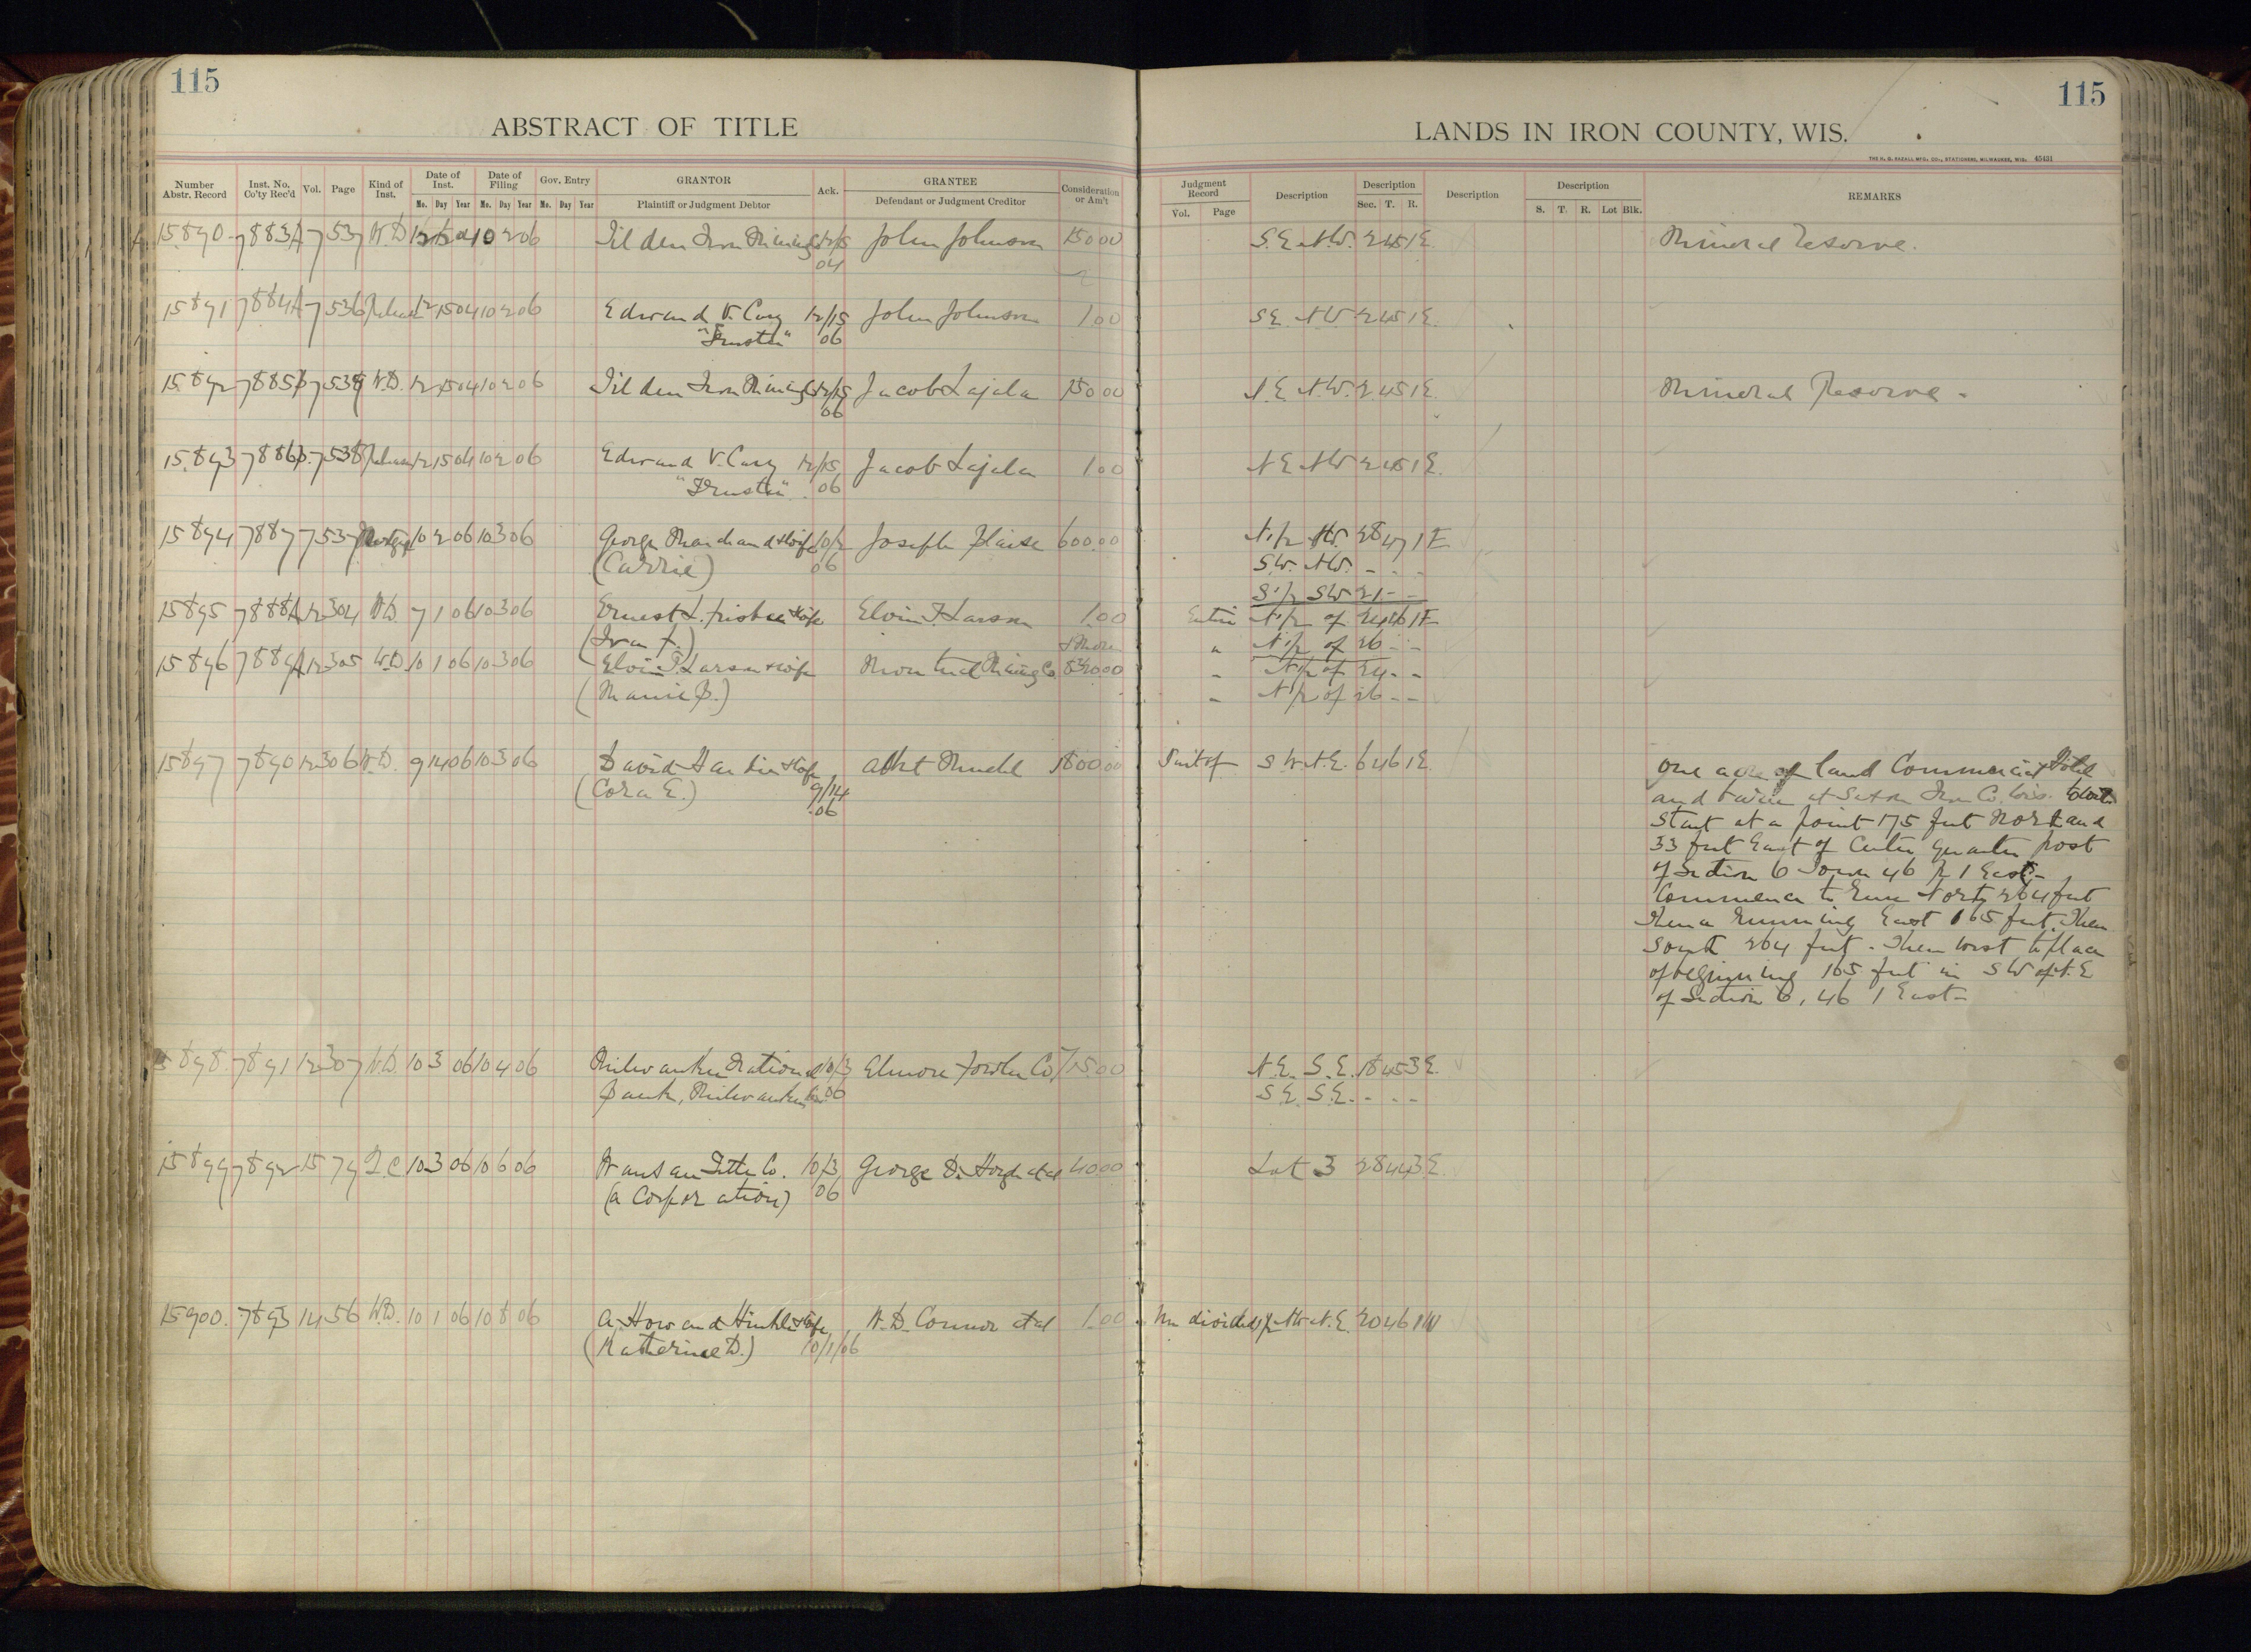 115
115
ABSTRACT OF TITLE
LANDS IN IRON COUNTY, WIS.
THE H. G. RAZALL MFG. CO., STATIONERS, MILWAUKEE, WIS. 45431
Number Abstr. Record Inst. No. Co'ty Rec'd Vol. Page Kind of Inst. Date of Inst. Mo. Day Year Date of Filing Mo. Day Year Gov. Entry Mo. Day Year GRANTOR Plaintiff or Judgment Debtor Ack. GRANTEE Defendant or Judgment Creditor Consideration or Am't
Judgment Record Vol. Page Description Description Sec. T. R. Description Description S. T. R. Lot Blk. REMARKS
15890 7883A 7 537 W.D. 10 2 06 Tilden Iron Mining Co 12/15 John Johnson 150 00 S.E. N.W. 2 45 1 E. Mineral Reserve.
04
15891 7884A 7 536 Release 12 15 04 10 2 06 Edward V. Cary 12/15 John Johnson 1 00 S.E. N.W. 2 45 1 E.
"Trustee" 06
15892 7885 7 539 W.D. 12 15 04 10 2 06 Tilden Iron Mining Co 12/15 Jacob Lajala 150 00 N.E. N.W. 2 45 1 E. Mineral Reserve -
06
15893 7886 7 538 Release 12 15 04 10 2 06 Edward V. Cary 12/15 Jacob Lajala 1 00 N.E. N.W. 2 45 1 E.
"Trustee" 06
15894 7887 7 537 Mortgage 10 2 06 10 3 06 George Marchand & wife 10/2 Joseph Blaise 600 00 N 1/2 N.W. 28 47 1 E
(Carrie) 06 S.W. N.W. - - -
S 1/2 SW 21 - -
15895 7888A 12 304 W.D. 7 1 06 10 3 06 Ernest L. Frisbie & wife Elvin T. Larson 1 00 Entire N 1/2 of 24 46 1 E
& More " N 1/2 of 26 - -
15896 7889A 12 305 W.D. 10 1 06 10 3 06 Elvin T. Larson & wife Montreal Mining Co. - N 1/2 of 24 - -
(Mamie B.) - N 1/2 of 26 - -
15897 7890 12 306 W.D. 9 14 06 10 3 06 David Hardie & wife Albt Muehl 1800 00 Part of S W N.E. 6 46 1 E.
(Cora E.) 9/14
06
One acre of land Commercial Hotel
and barn at Saxon Iron Co. Wis. to wit
Start at a point 175 feet North and
33 feet East of Center quarter post
of Section 6 Town 46 R 1 East -
Commence to Run North 264 feet
thence Running East 165 feet. Then
South 264 feet. Then West to place
of beginning 165 feet in S W of N.E
of Section 6, 46 1 East -
15898 7891 12 307 W.D. 10 3 06 10 4 06 Milwaukee National 10/3 Elmore Fowler Co 715 00 N.E. S.E. 18 45 3 E.
Bank, Milwaukee Wis. S.E. S.E. - - -
15899 7892 15 79 Q.C. 10 3 06 10 6 06 Wausau Title Co. 10/3 George D. et al 40 00 Lot 3 28 44 3 E.
(a Corporation) 06
15900. 7893 14 56 W.D. 10 1 06 10 8 06 A. Howard Hinkle & wife W.D. Connor et al 1.00 Undivided 1/2 NW N.E. 20 46 1 W
(Katherine D.) 10/1/06